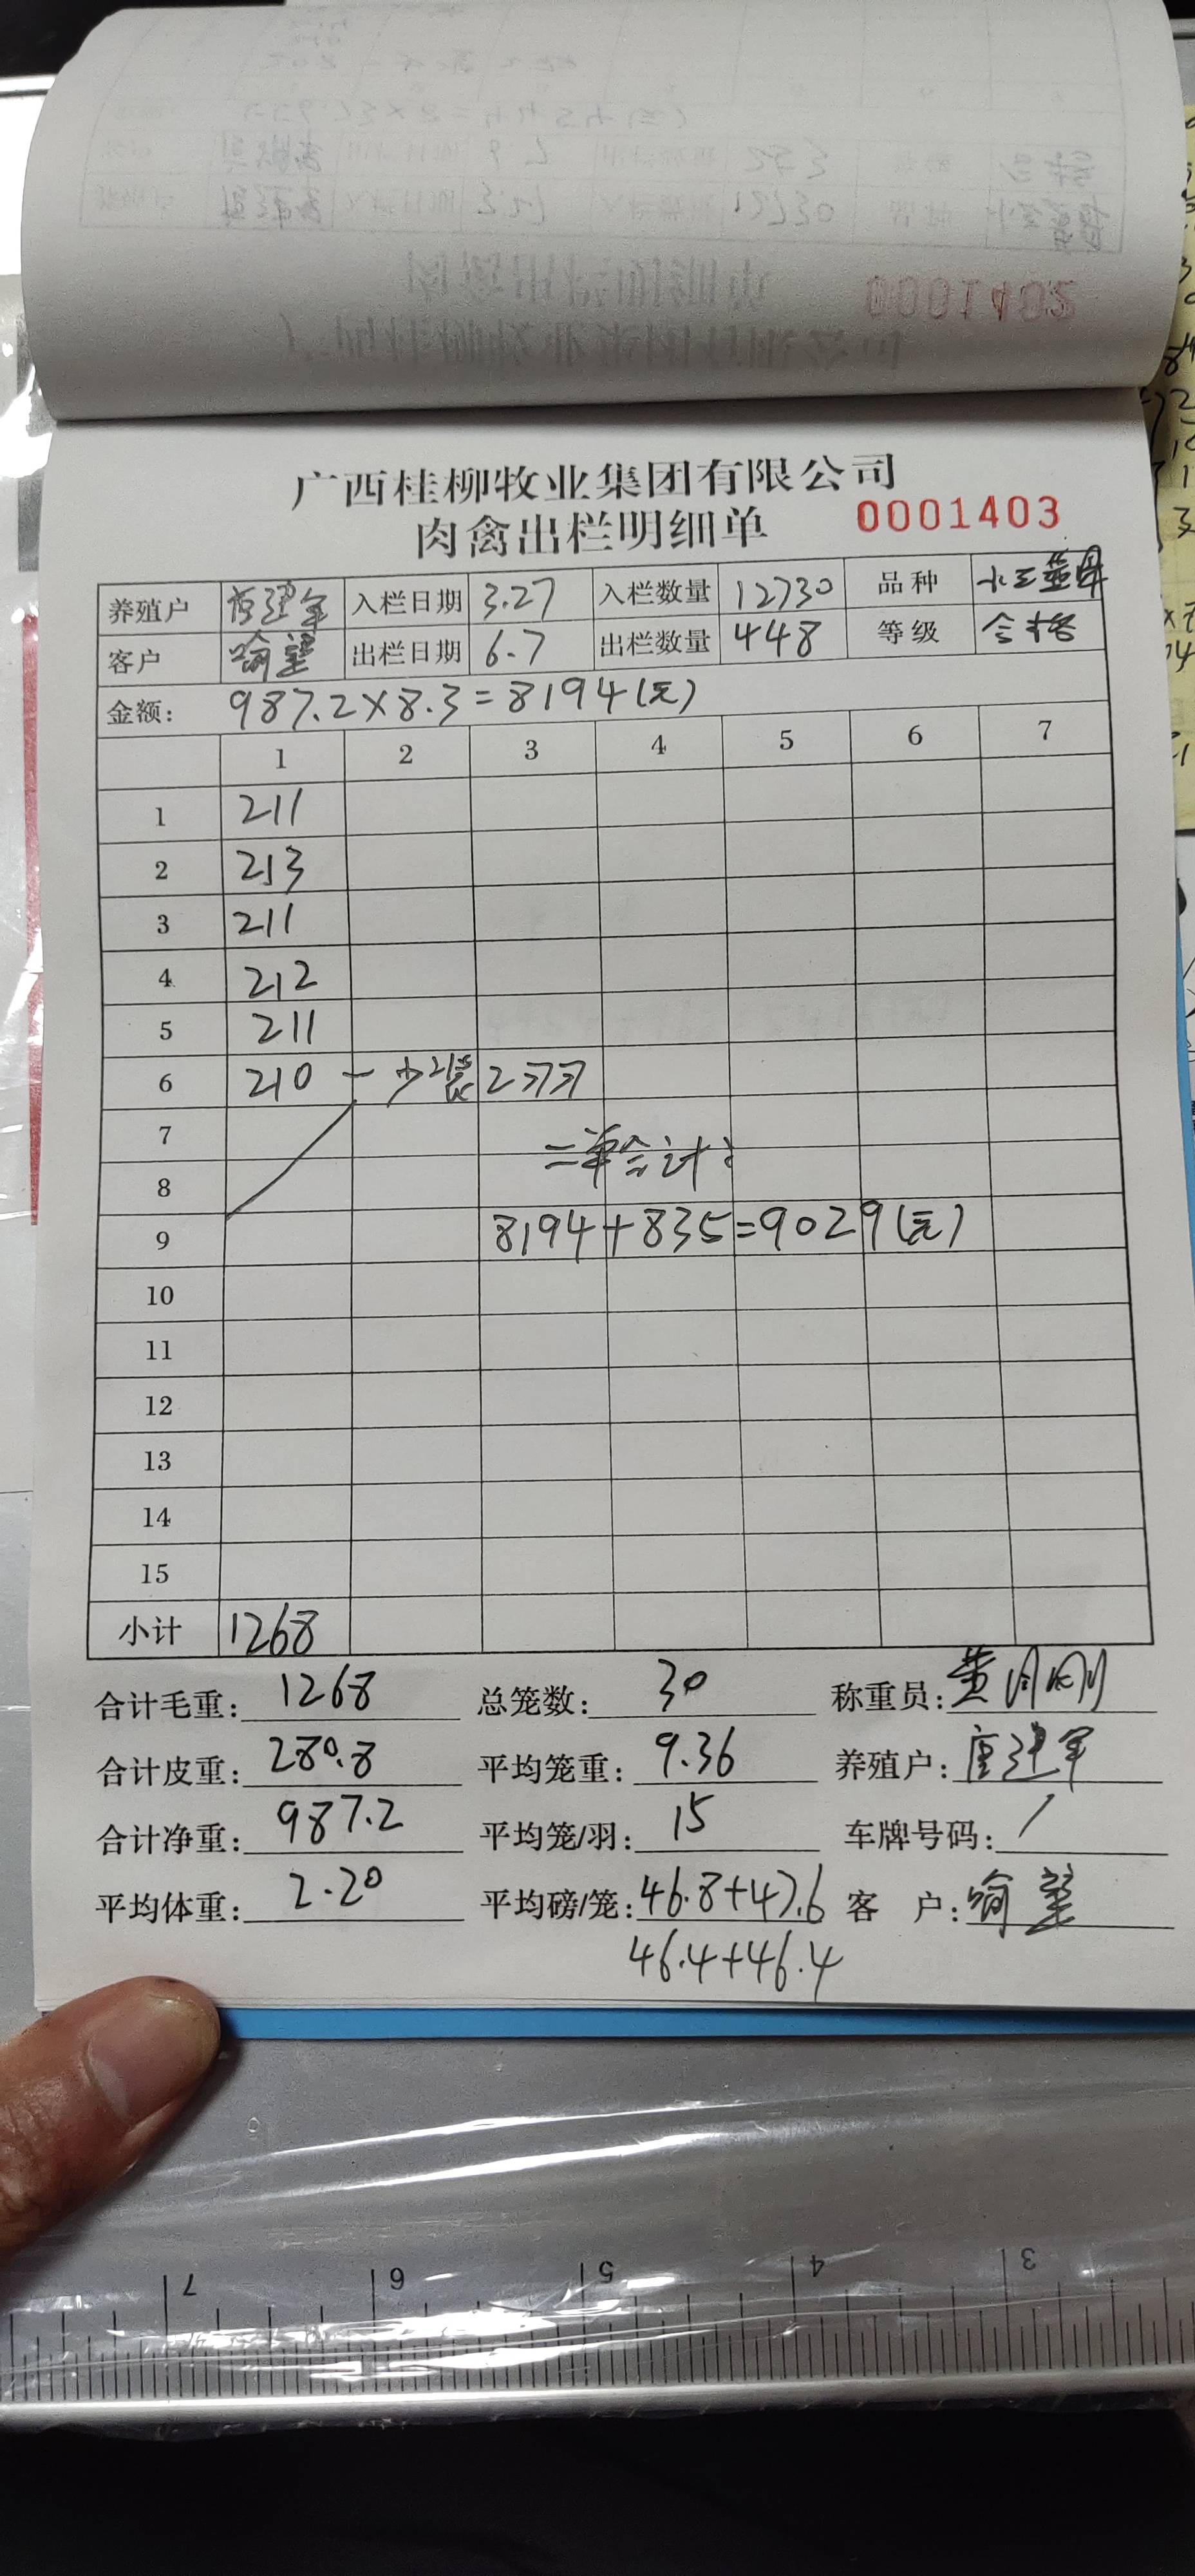 广西桂柳牧业集团有限公司
肉禽出栏明细单 0001403
养殖户 唐建军 入栏日期 3.27 入栏数量 12730 品种
客户 喻望 出栏日期 6.7 出栏数量 448 等级 合格
金额: 987.2×8.3=8194(元)
1 2 3 4 5 6 7
1 211
2 213
3 211
4 212
5 211
6 210 — 少装2羽
7
二单合计:
8
9 8194+835=9029(元)
10
11
12
13
14
15
小计 1268
合计毛重: 1268 总笼数: 30 称重员: 黄闩刚
合计皮重: 280.8 平均笼重: 9.36 养殖户: 唐建军
合计净重: 987.2 平均笼/羽: 15 车牌号码: /
平均体重: 2.20 平均磅/笼: 46.8+47.6 客 户: 喻望
46.4+46.4
7 6 5 4 3